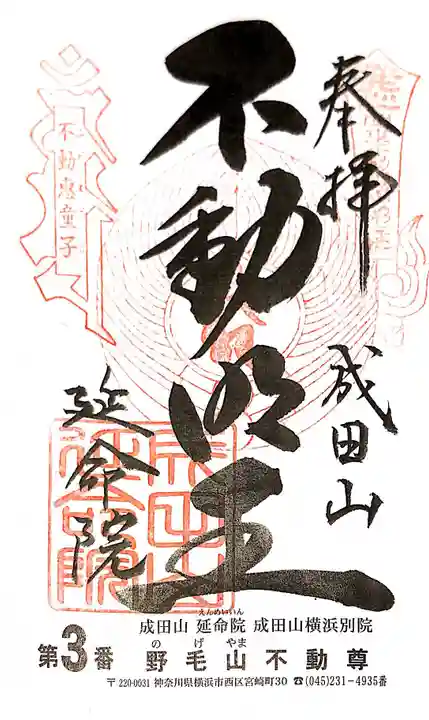 奉拝
成田山
不動明王
延命院
不動恵童子
えんめいいん
成田山 延命院 成田山横浜別院
のげやま
第3番 野毛山不動尊
〒220-0031 神奈川県横浜市西区宮崎町30 ☎(045)231-4935番